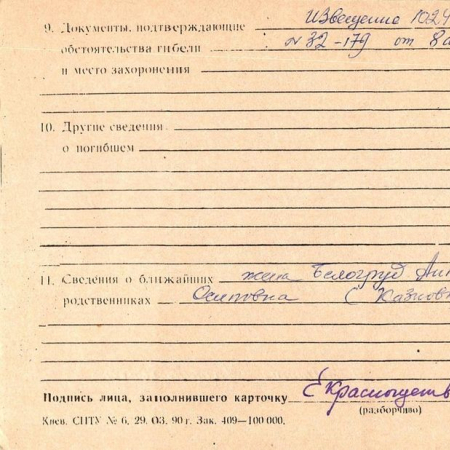 9. Документы, подтверждающие Извещение 1024
обстоятельства гибели № 32-179 от 8а
и место захоронения
10. Другие сведения
о погибшем
11. Сведения о ближайших жена Белогруд Анн
родственниках Осиповна с. Казнов
Подпись лица, заполнившего карточку Красношуетв
(разборчиво)
Киев. СПТУ № 6, 29. 03. 90 г. Зак. 409—100 000.